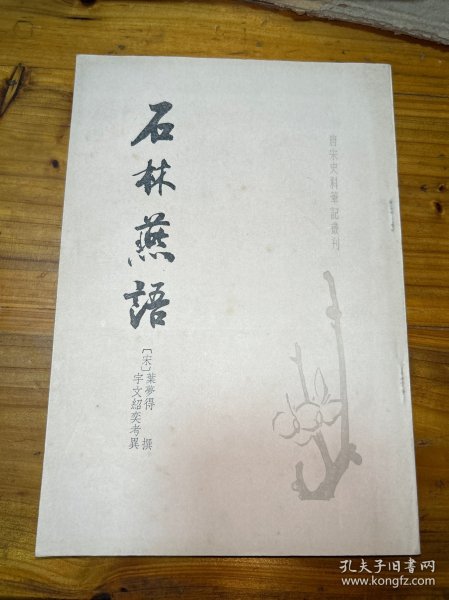 唐宋史料筆記叢刊
石林燕語
〔宋〕葉夢得 撰
宇文紹奕考異
孔夫子旧书网
www.kongfz.com